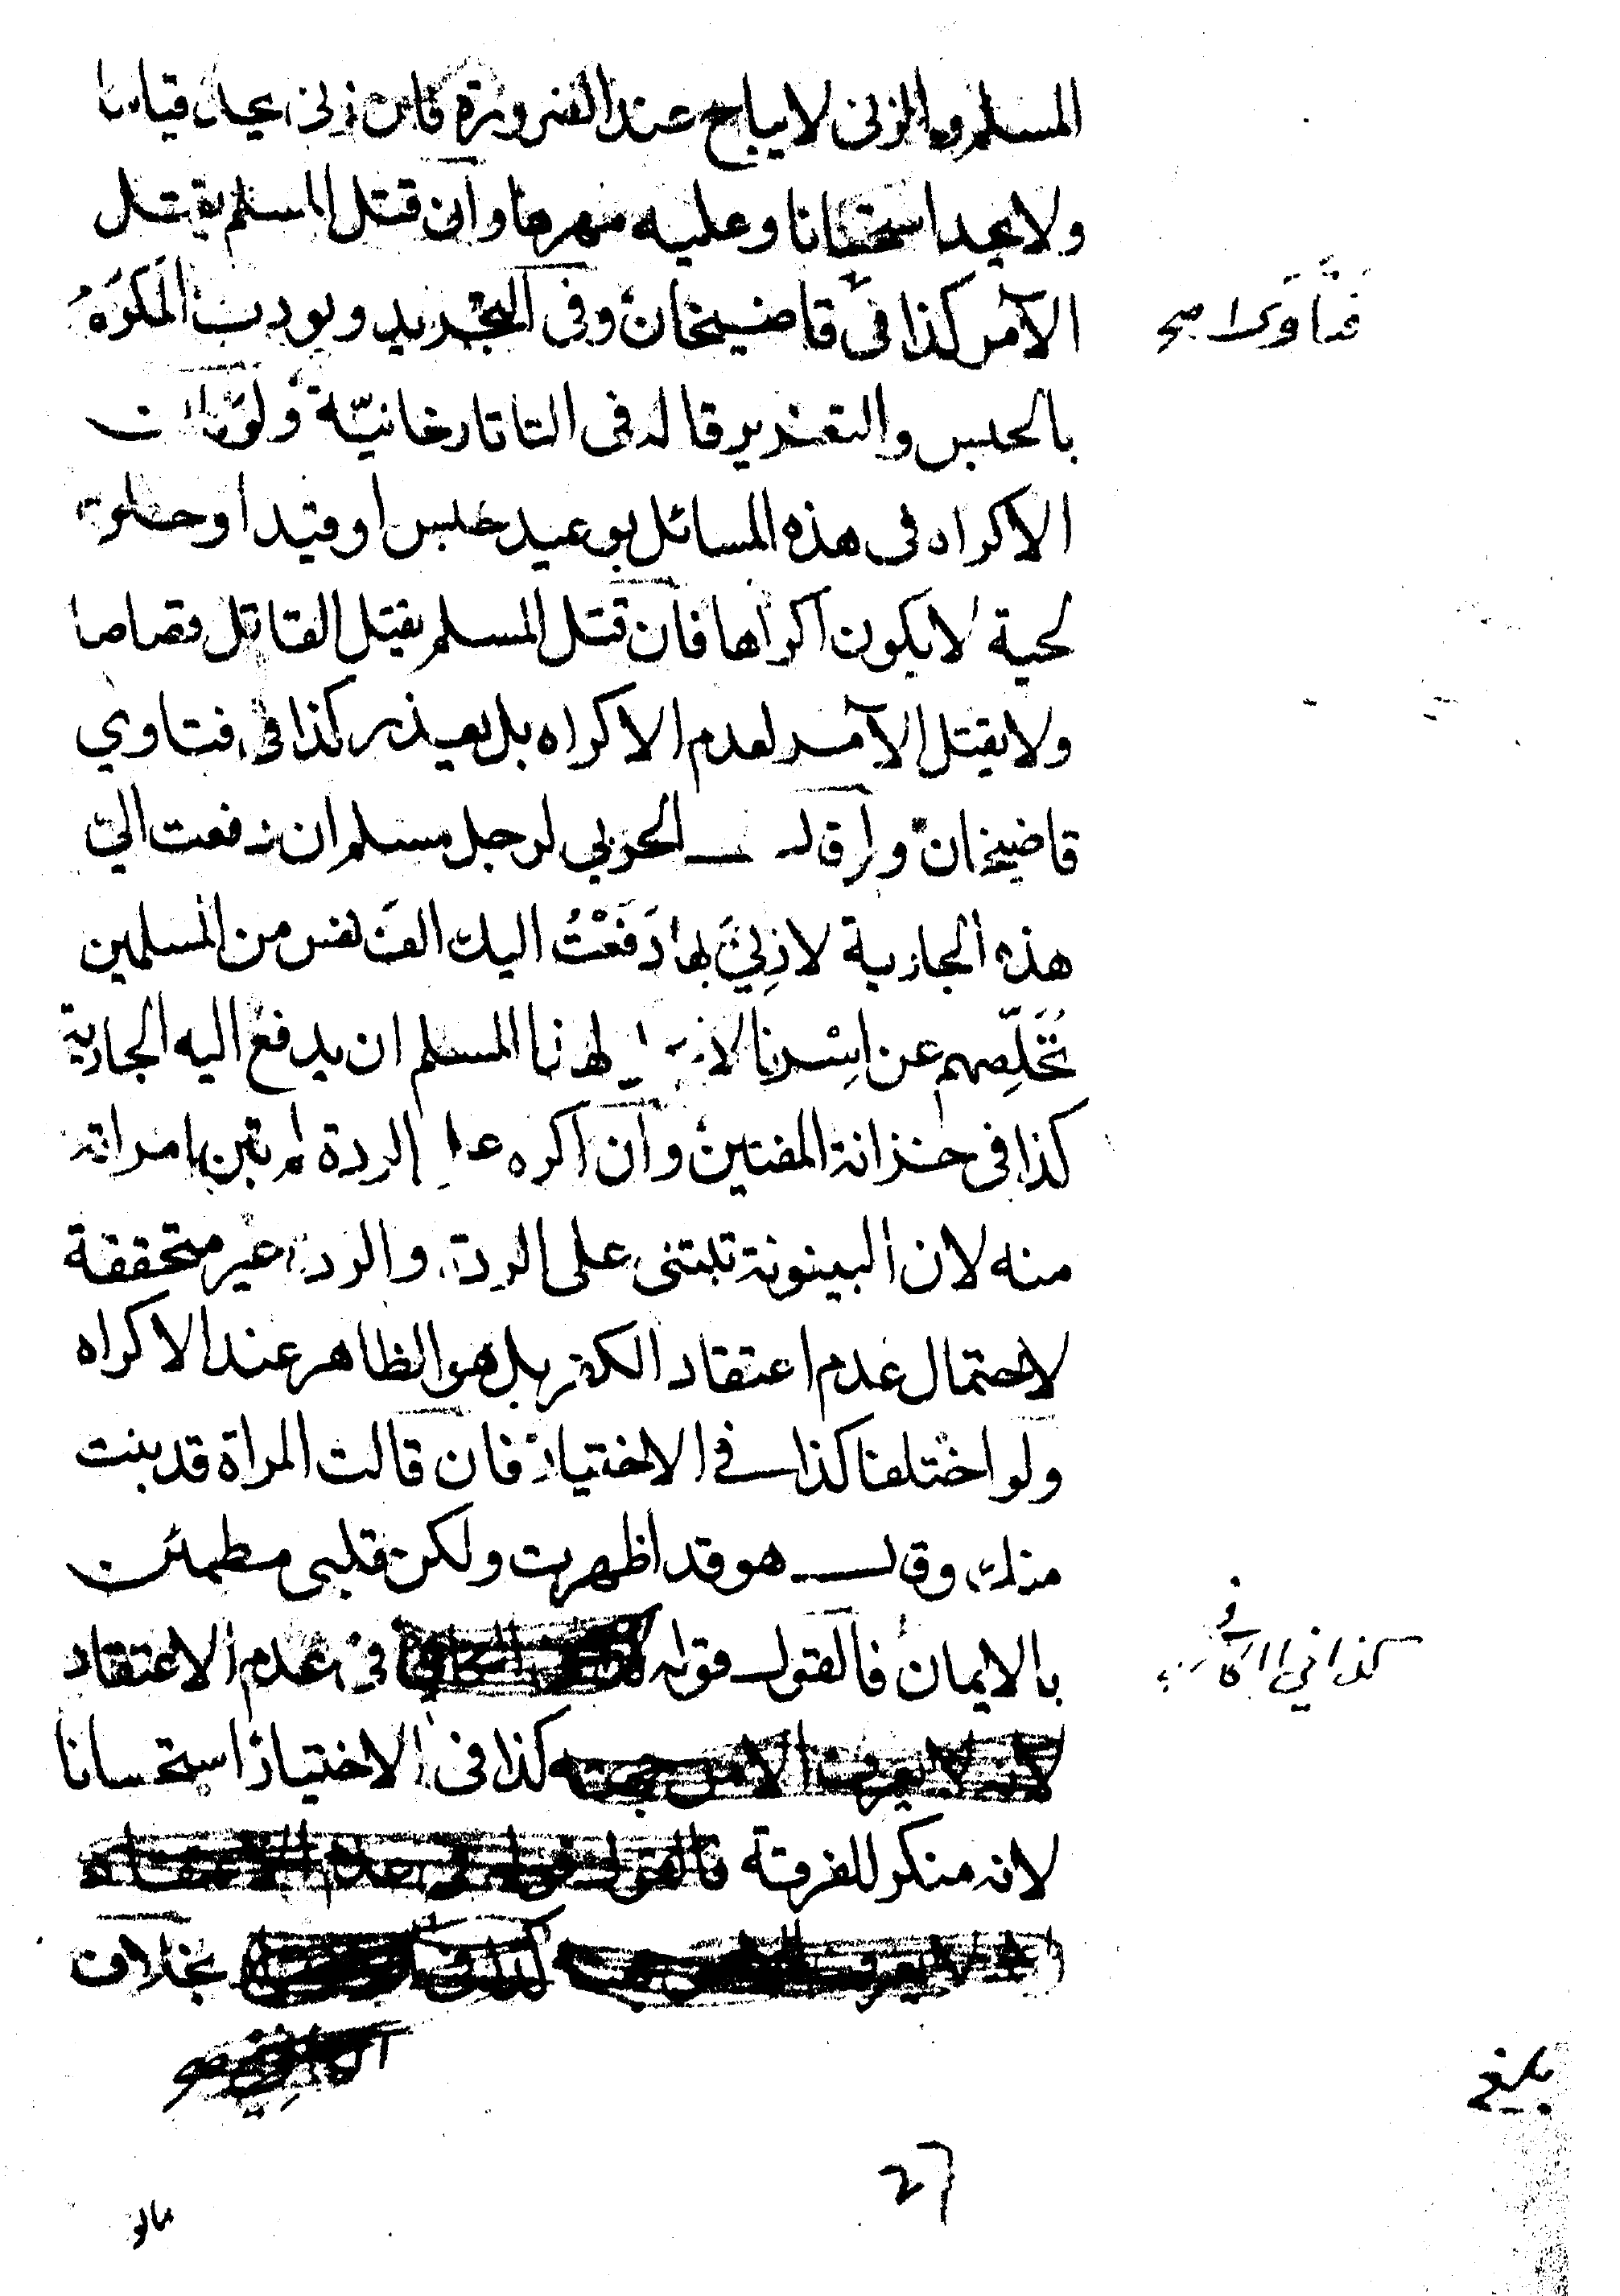 المسلم والزنى لا يباح عند الضرورة فان زنى يحد قياسا
ولا يحد استحسانا وعليه مهرها وان قتل المسلم يقتل
الآمر كذا فى قاضيخان وفى التجريد ويودب المكرَهُ
فتاوى صح
بالحبس والتعذير قاله فى التاتارخانيّة ولو كان
الاكراه فى هذه المسائل بوعيد حبس او قيد او حلق
لحية لا يكون اكراها فان قتل المسلم يقتل القاتل قصاصا
ولا يقتل الآمر لعدم الاكراه بل يعذر كذا فى فتاوي
قاضيخان ولو قال الحربي لرجل مسلم ان دفعت اليّ
هذه الجارية لازنِيَ بها دَفَعْتُ اليك الف نفس من المسلمين
تُخَلِّصهم عن اسْرنا لا لهذا المسلم ان يدفع اليه الجارية
كذا فى خزانة المفتين وان اكره على الردة لم تبن امراته
منه لان البينونة تبتنى على الردة والردة غير متحققة
لاحتمال عدم اعتقاد الكفر بل هو الظاهر عند الاكراه
ولو اختلفا كذا فى الاختيار فان قالت المراة قد بنت
منك وقال هو قد اظهرت ولكن قلبى مطمئن
بالايمان فالقول قوله فى عدم الاعتقاد
كذا في الكافي
لانه لا يعرف الا من جهته كذا فى الاختيار استحسانا
لانه منكر للفرقة فالقول قوله فى عدم الاعتقاد
لا يعرف الا من جهته كذا فى بخلاف
بلغ
27